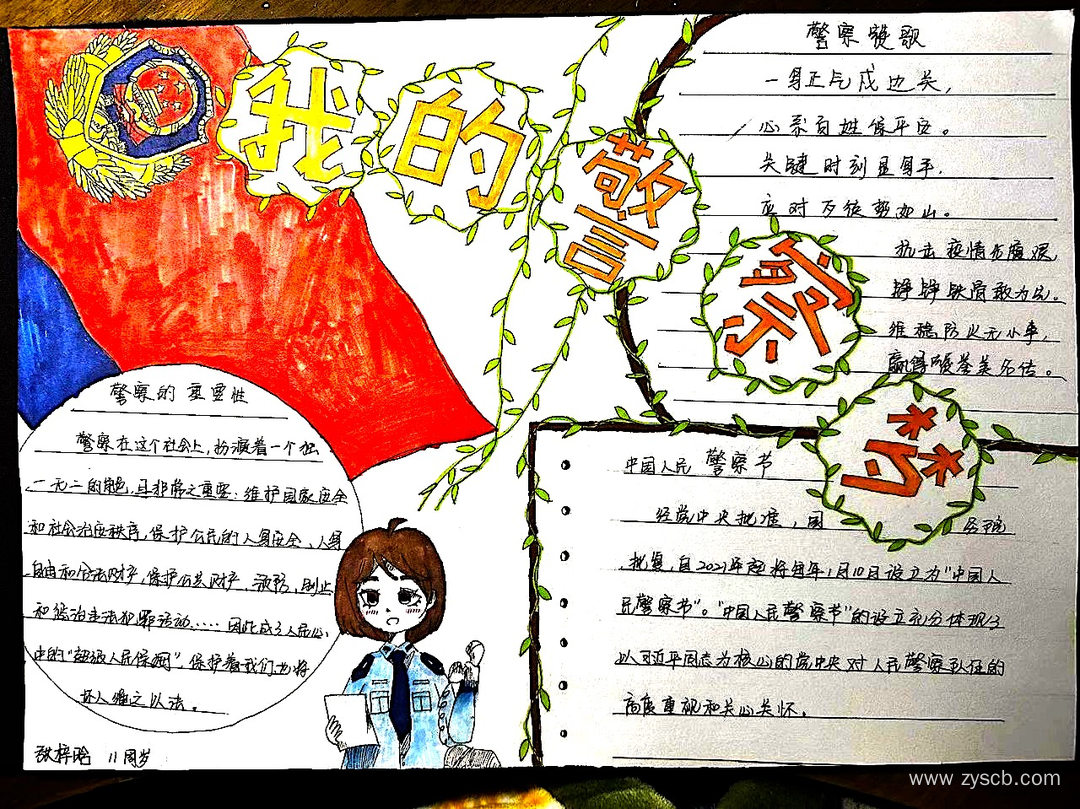 我的警察梦
警察赞歌
一身正气戍边关，
心系百姓保平安。
关键时刻显身手，
应对万徒势如山。
抗击疫情历艰，
铮铮铁骨敢为民。
维稳防火无小事，
赢得硬誉美名传。
警察的重要性
警察在这个社会上，扮演着一个独
一无二的角色，且非常之重要：维护国家安全
和社会治安秩序，保护公民的人身安全、人身
自由和合法财产，保护公共财产，预防、制止
和惩治违法犯罪活动……因此成了人民心
中的“超级人民保姆”，保护着我们也将
坏人绳之以法。
中国人民警察节
经党中央批准，国务院
批复，自2021年起将每年1月10日设立为“中国人
民警察节”。“中国人民警察节”的设立充分体现了
以习近平同志为核心的党中央对人民警察队伍的
高度重视和关心关怀。
张梓晗 11周岁
www.zyscb.com